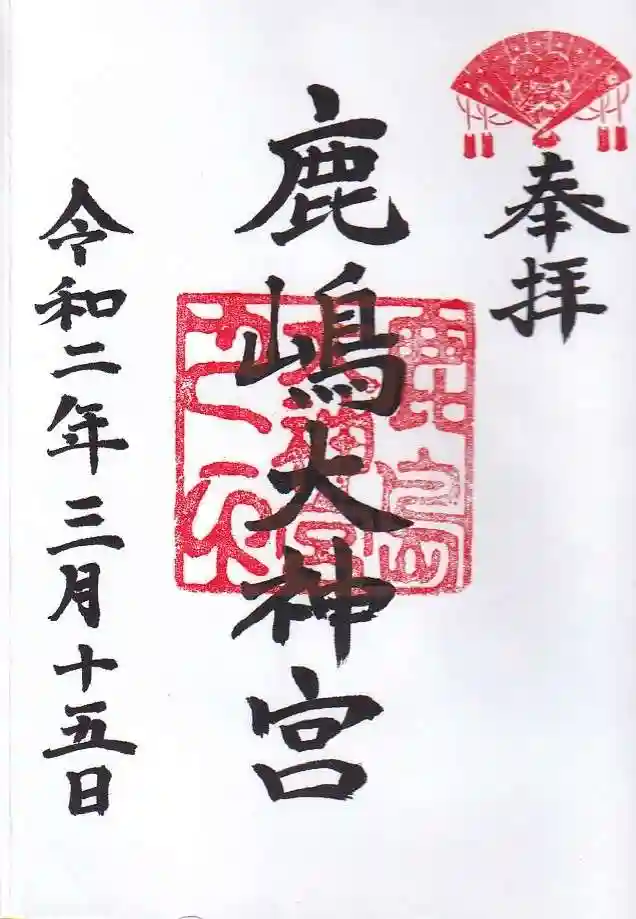 奉拝
鹿嶋大神宮
令和二年三月十五日